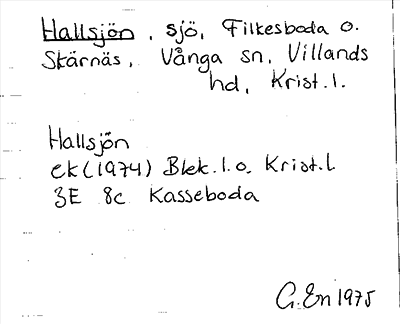 Hallsjön, sjö, Filkesboda o.
Skärnäs, Vånga sn, Villands
hd, Krist. l.
Hallsjön
ek (1974) Blek. l. o. Krist. l.
3E 8c Kasseboda
G. En 1975